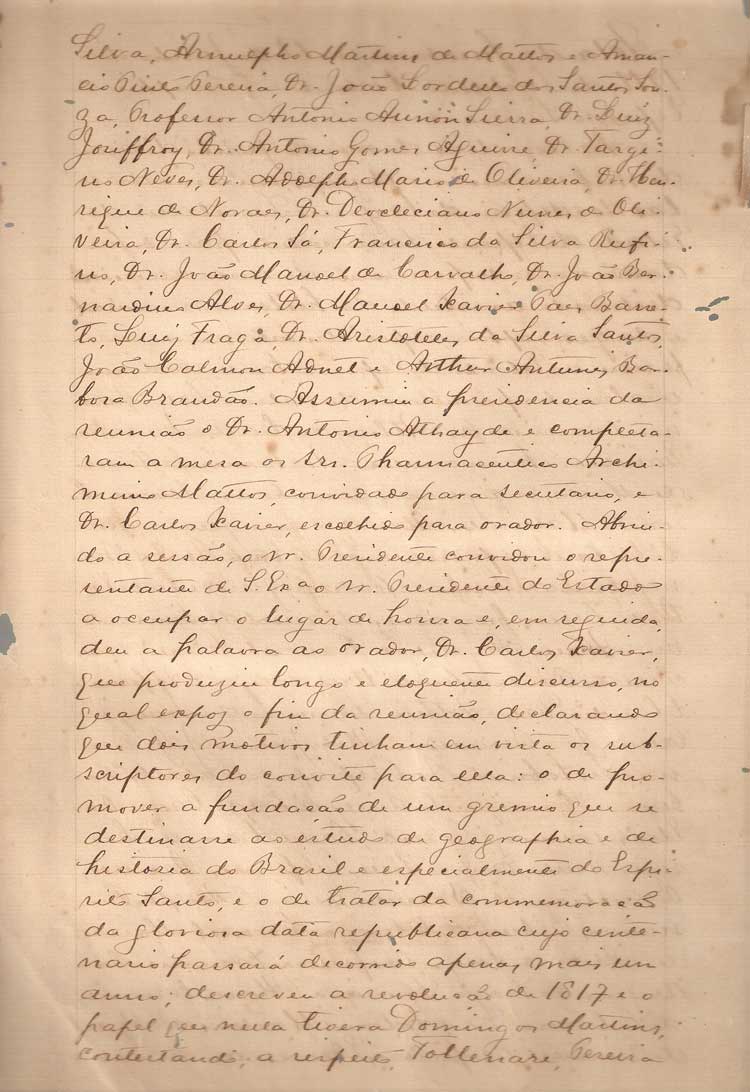 Silva, Arnulpho Martins de Mattos e Aman-
cio Pinto Pereira, Dr. João Lordello dos Santos Sou-
za, Professor Antonio Aunón Sierra, Dr. Luiz
Joriffroy, Dr. Antonio Gomes Aguirre, Dr. Targi-
no Neves, Dr. Adolpho Mario de Oliveira, Dr. Hen-
rique de Novaes, Dr. Deocleciano Nunes de Oli-
veira, Dr. Carlos Sá, Francisco da Silva Rufi-
no, Dr. João Manoel de Carvalho, Dr. João Ber-
nardino Alves, Dr. Manoel Xavier Paes Barre-
to, Luiz Fraga, Dr. Aristoteles da Silva Santos,
João Calmon Adnet e Arthur Antunes Bar-
bosa Brandão. Assumiu a presidencia da
reunião o Dr. Antonio Athayde e completa-
ram a mesa os srs. Pharmaceutico Archi-
mimo Mattos, convidado para secretario, e
Dr. Carlos Xavier, escolhido para orador. Abrin-
do a sessão, o sr. Presidente convidou o repre-
sentante de S. Exª o sr. Presidente do Estado
a occupar o lugar de honra e, em seguida,
deu a palavra ao orador, Dr. Carlos Xavier,
que produziu longo e eloquente discurso, no
qual expoz o fim da reunião, declarando
que dois motivos tinham em vista os sub-
scriptores do convite para ella: o de pro-
mover a fundação de um gremio que se
destinasse ao estudo de geographia e de
historia do Brasil e especialmente do Espi-
rito Santo, e o de tratar da commemoração
da gloriosa data republicana cujo cente-
nario passará decorrido apenas mais um
anno; descreveu a revolução de 1817 e o
papel que nella tivera Domingos Martins,
contestando, a respeito, Tollenare, Pereira